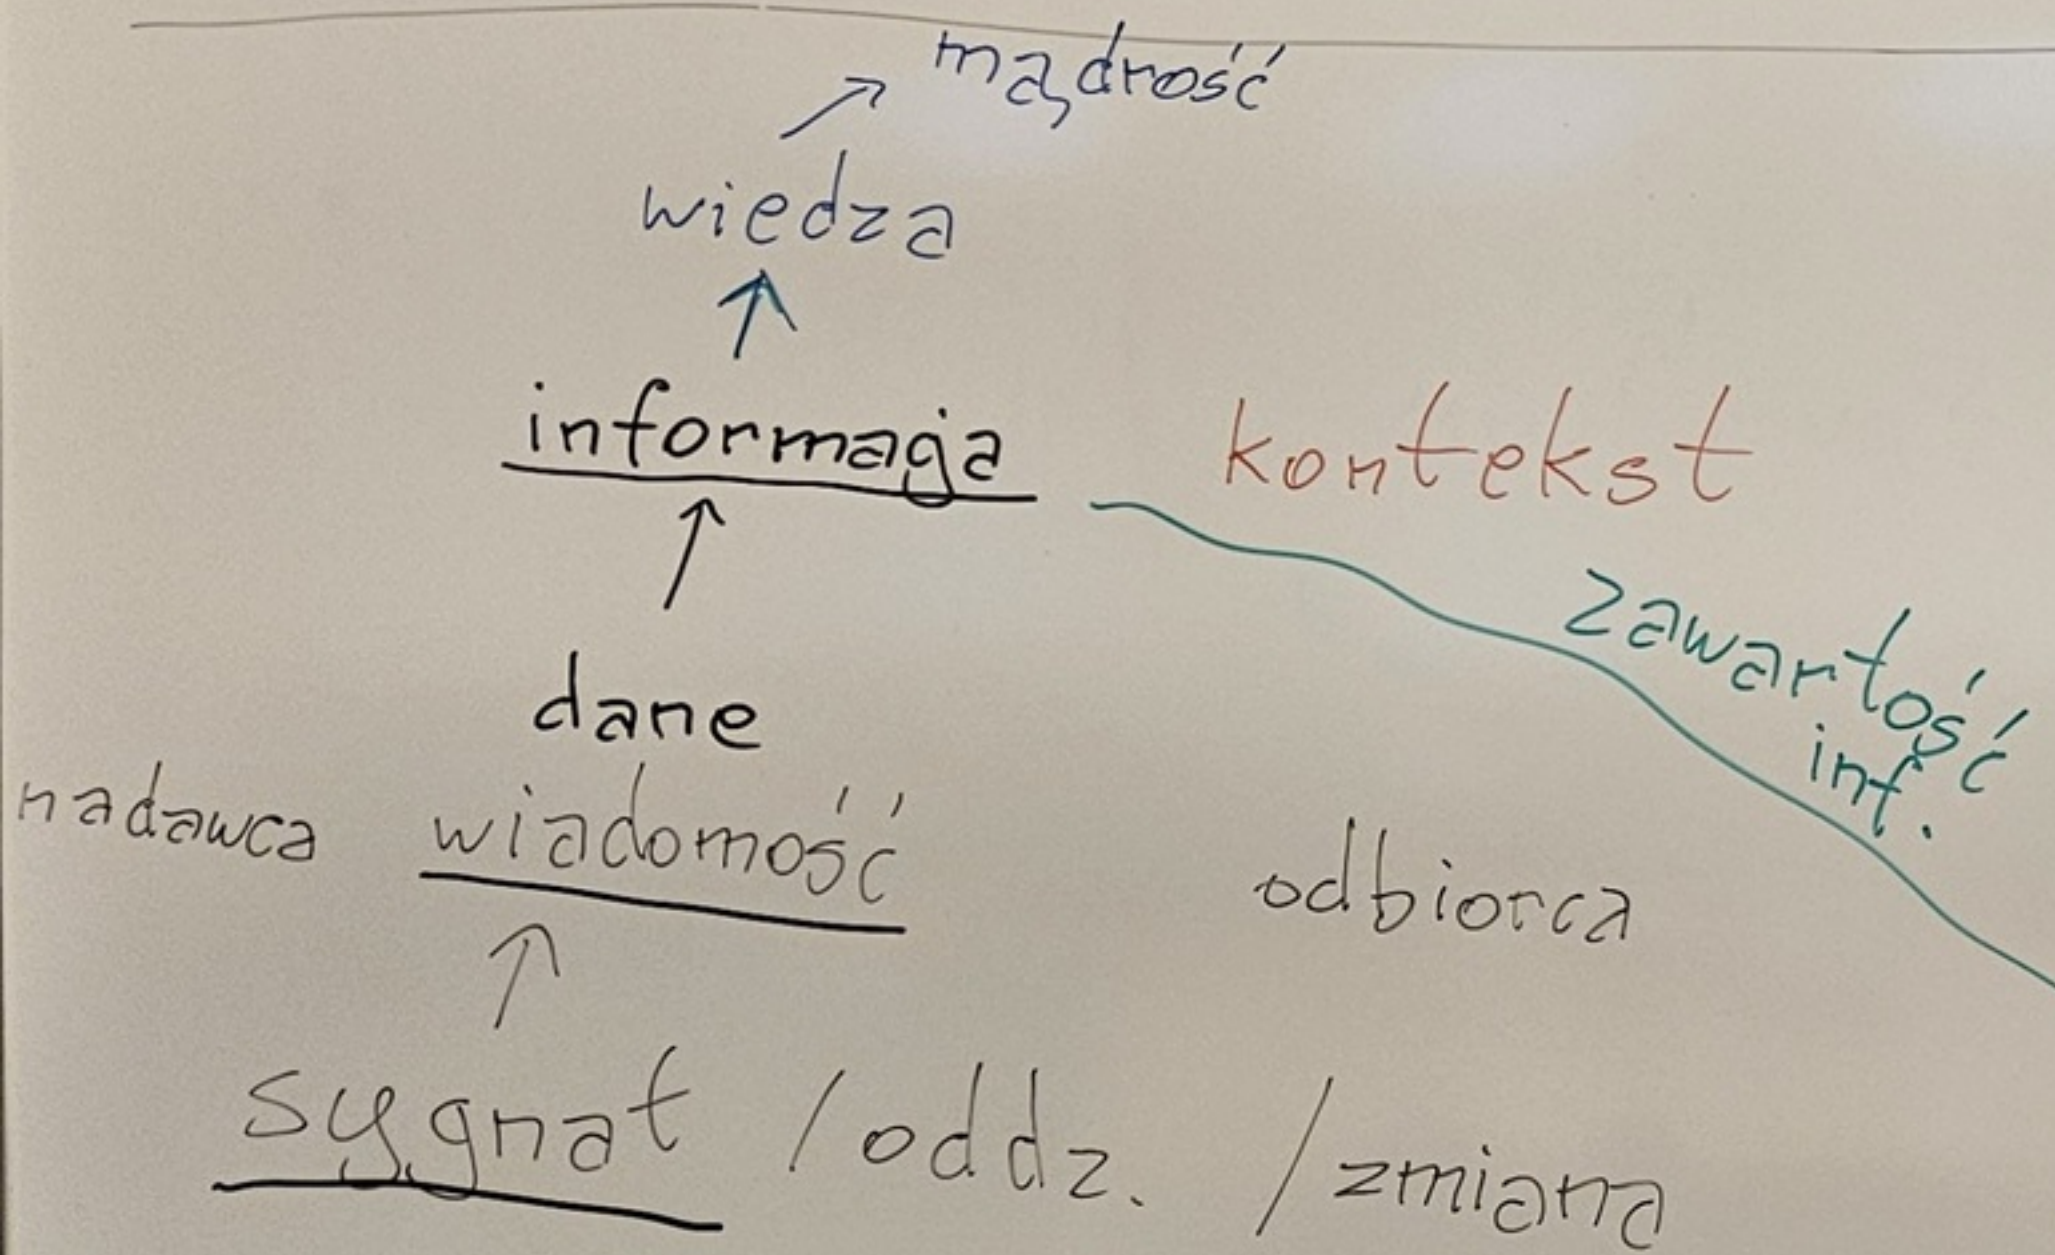 mądrość
wiedza
informacja
kontekst
zawartość
inf.
dane
nadawca wiadomość odbiorca
sygnał / oddz. / zmiana